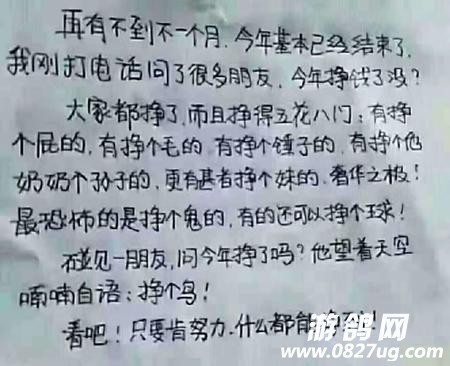 再有不到不一个月.今年基本已经结束了,
我刚打电话问了很多朋友,今年挣钱了没?
大家都挣了,而且挣得五花八门:有挣
个屁的,有挣个毛的,有挣个锤子的,有挣个他
奶奶个孙子的,更有甚者挣个妹的,奢华之极!
最恐怖的是挣个鬼的,有的还可以挣个球!
碰见一朋友,问今年挣了吗?他望着天空
喃喃自语:挣个鸟!
看吧!只要肯努力.什么都能挣到!
游鸽网
www.0827ug.com